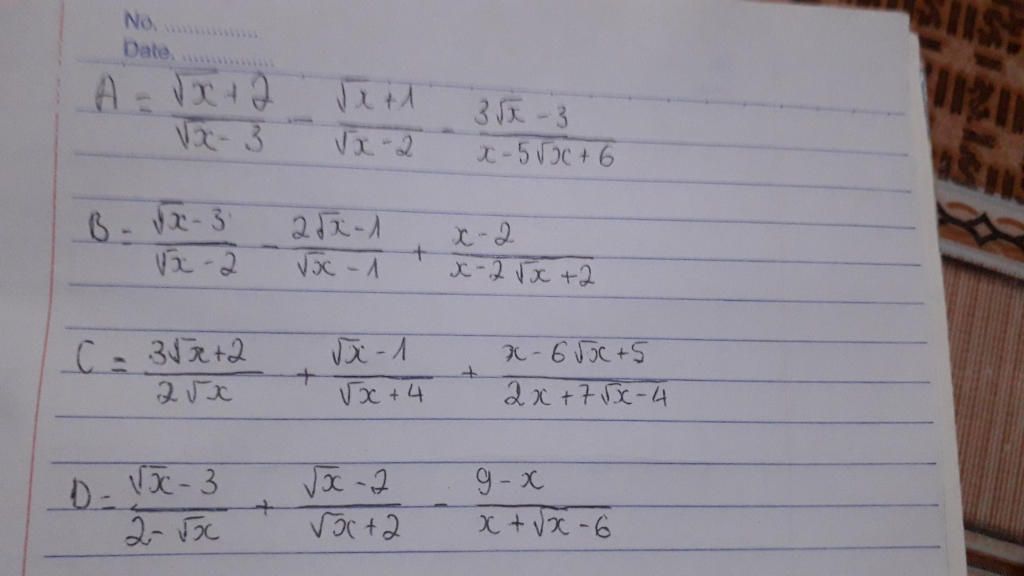 No. ................
Date. ................
A = (√x + 2)/(√x - 3) - (√x + 1)/(√x - 2) - (3√x - 3)/(x - 5√x + 6)
B = (√x - 3)/(√x - 2) - (2√x - 1)/(√x - 1) + (x - 2)/(x - 2√x + 2)
C = (3√x + 2)/(2√x) + (√x - 1)/(√x + 4) + (x - 6√x + 5)/(2x + 7√x - 4)
D = (√x - 3)/(2 - √x) + (√x - 2)/(√x + 2) - (9 - x)/(x + √x - 6)